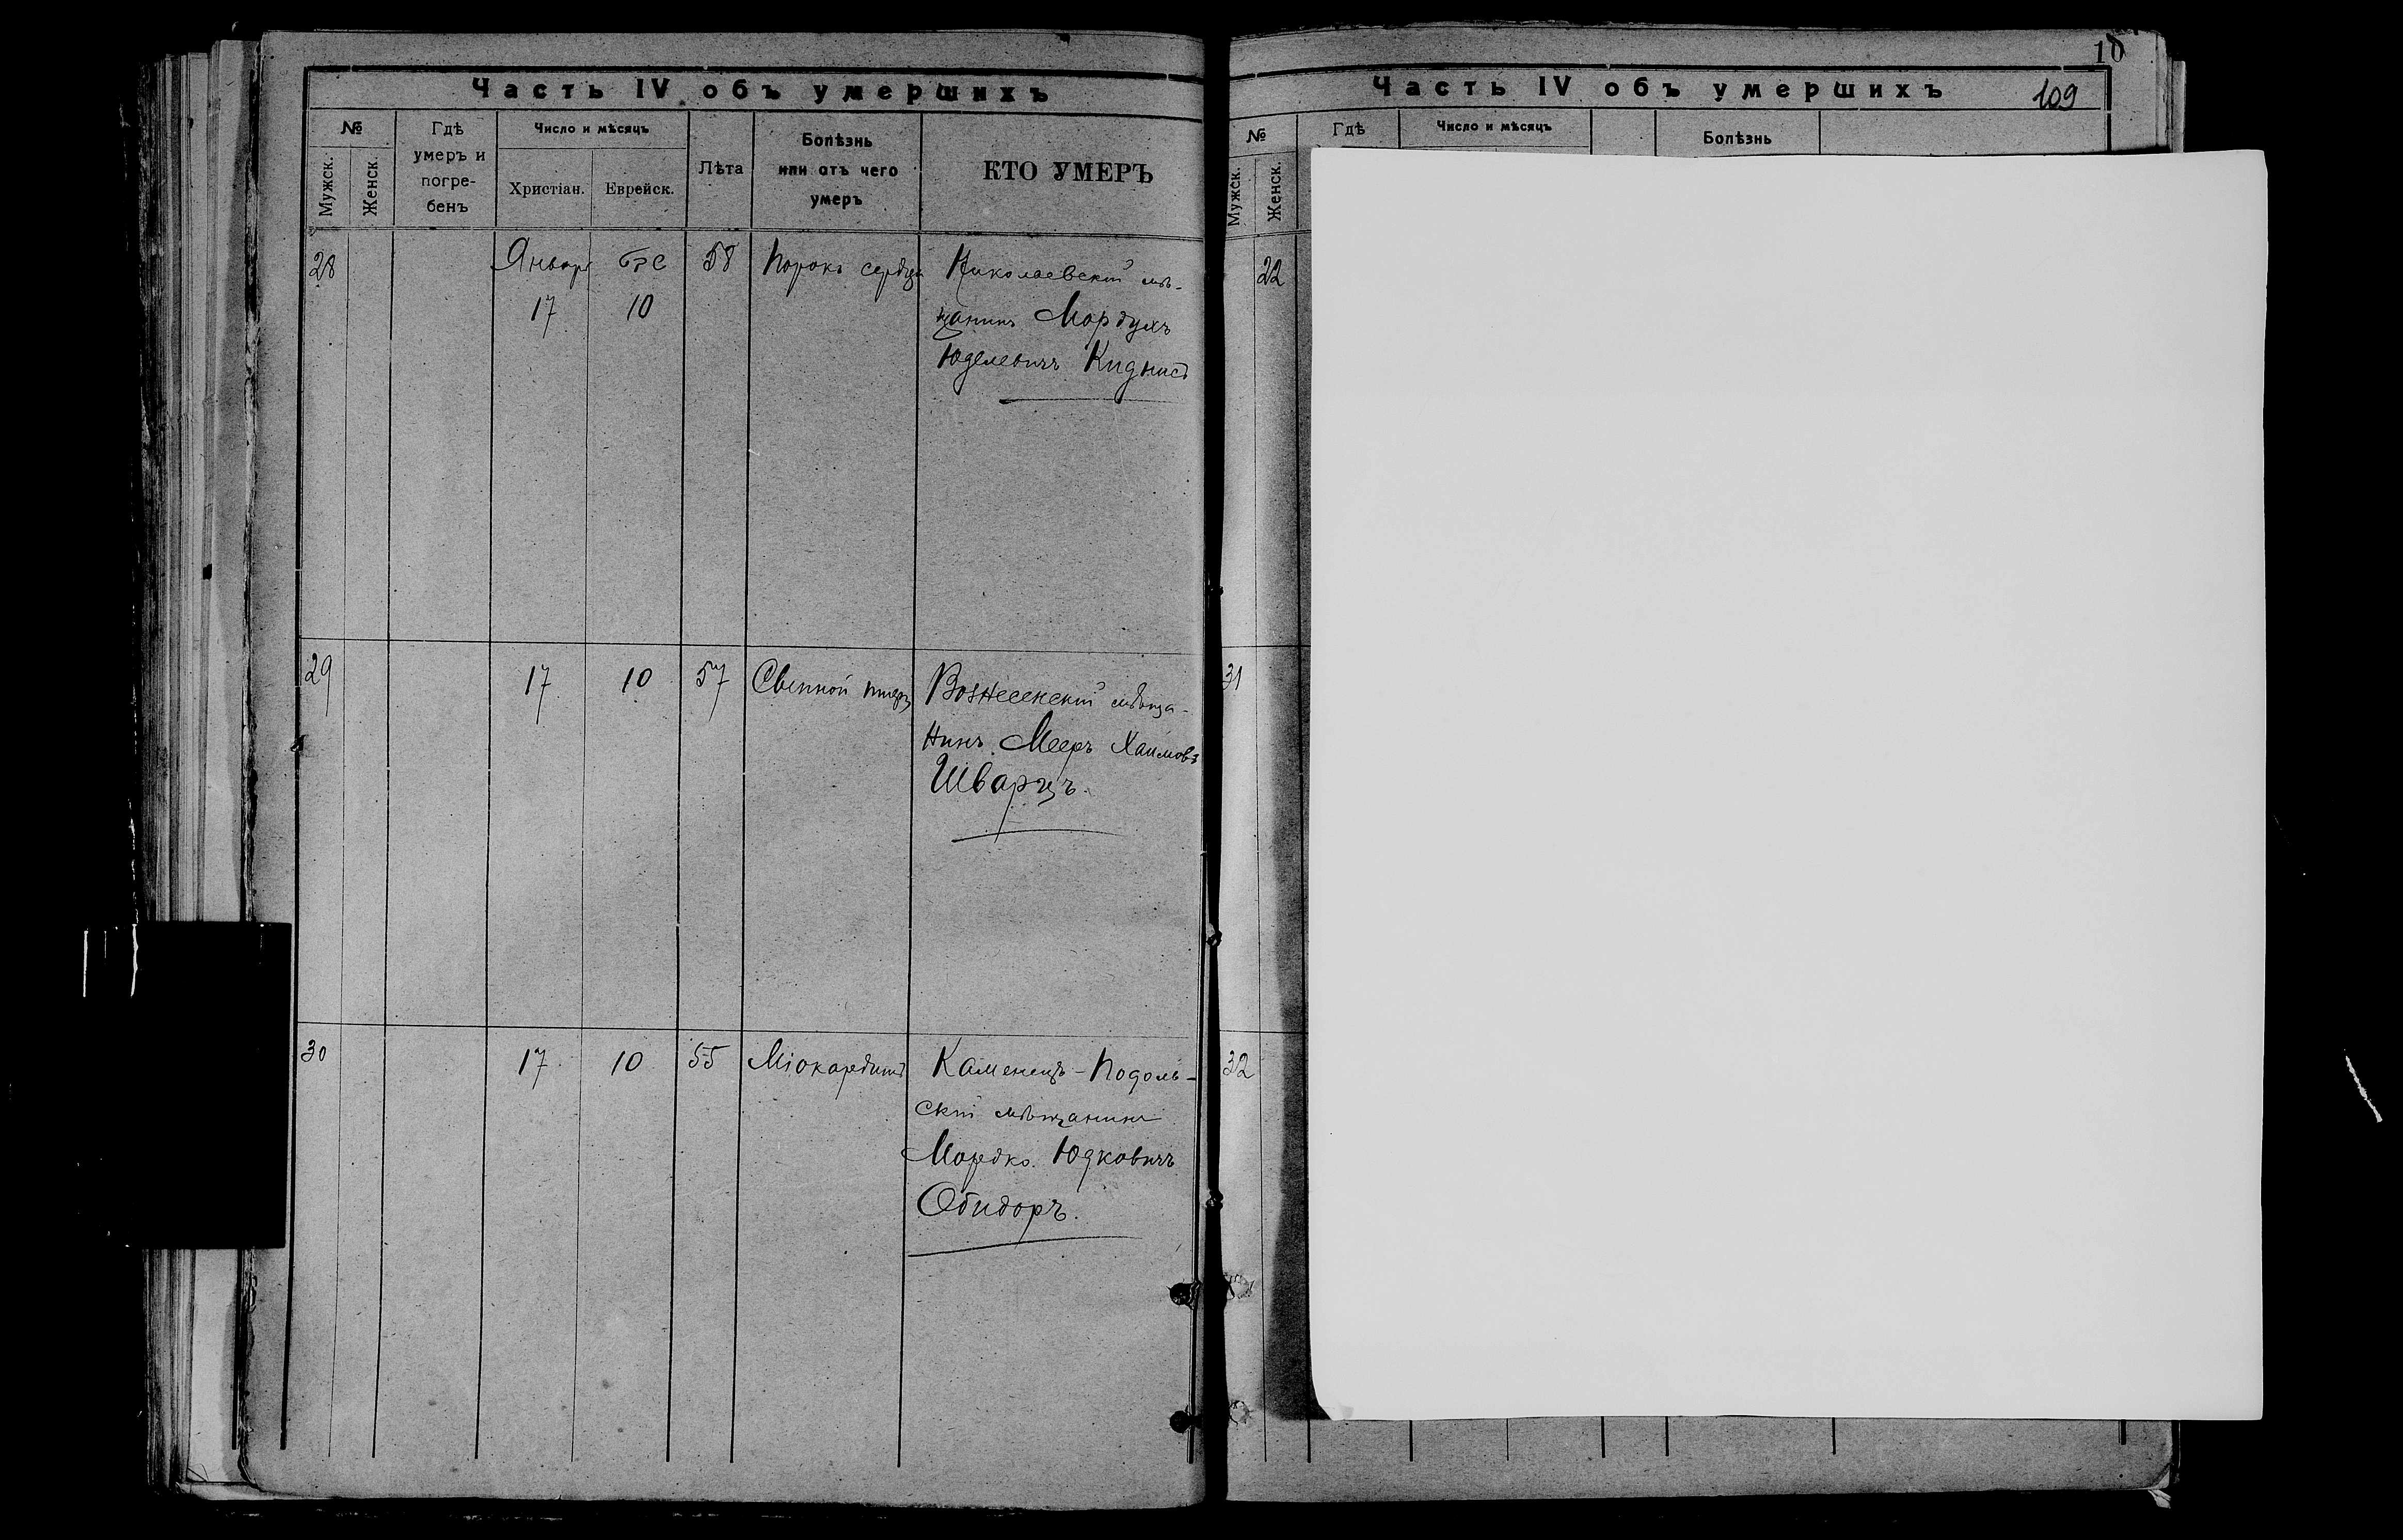 Часть IV объ умершихъ
№
Мужск.
Женск.
Гдѣ
умеръ и
погре-
бенъ
Число и мѣсяцъ
Христіан.
Еврейск.
Лѣта
Болѣзнь
или отъ чего
умеръ
КТО УМЕРЪ
28
Января
17
10
58
Порокъ сердца
Николаевскій мѣ-
щанинъ Мордухъ
Юделевичъ Киднисъ
29
17
10
57
Вознесенскій мѣща-
нинъ Мееръ Хаимовъ
Шварцъ.
30
17
10
55
Міокардитъ
Каменецъ-Подоль-
скій мѣщанинъ
Мордко Юдковичъ
Обидоръ.
10
Часть IV объ умершихъ
109
№
Мужск.
Женск.
Гдѣ
Число и мѣсяцъ
Болѣзнь
22
31
32